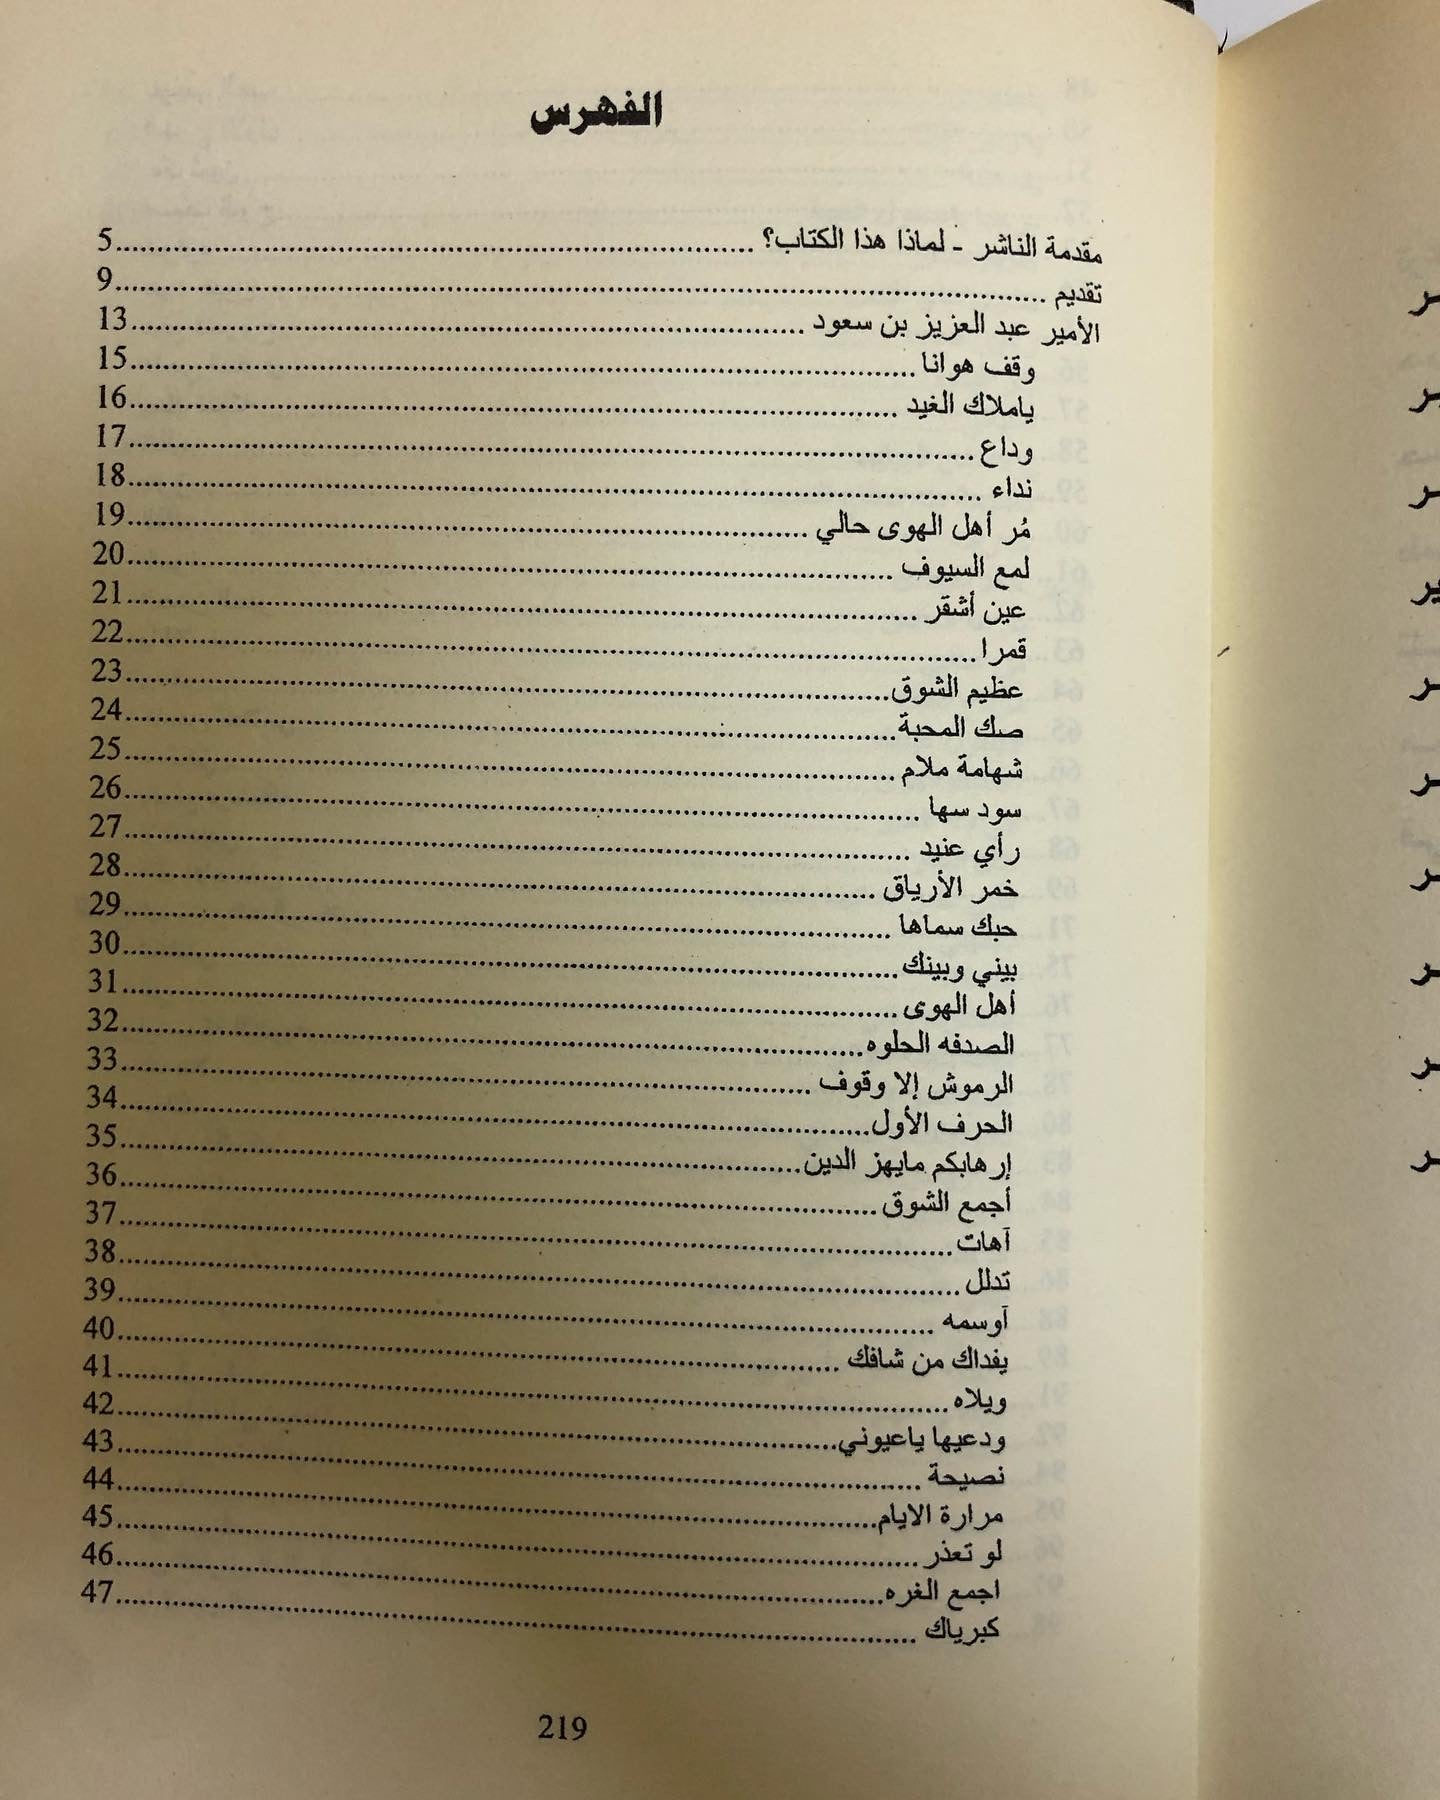 الفهرس
مقدمة الناشر - لماذا هذا الكتاب؟ ................ 5
تقديم ................ 9
الأمير عبد العزيز بن سعود ................ 13
وقف هوانا ................ 15
ياملاك الغيد ................ 16
وداع ................ 17
نداء ................ 18
مُر أهل الهوى حالي ................ 19
لمع السيوف ................ 20
عين أشقر ................ 21
قمرا ................ 22
عظيم الشوق ................ 23
صك المحبة ................ 24
شهامة ملام ................ 25
سود سها ................ 26
رأي عنيد ................ 27
خمر الأرياق ................ 28
حبك سماها ................ 29
بيني وبينك ................ 30
أهل الهوى ................ 31
الصدفه الحلوه ................ 32
الرموش إلا وقوف ................ 33
الحرف الأول ................ 34
إرهابكم مايهز الدين ................ 35
أجمع الشوق ................ 36
آهات ................ 37
تدلل ................ 38
آوسمه ................ 39
يفداك من شافك ................ 40
ويلاه ................ 41
ودعيها ياعيوني ................ 42
نصيحة ................ 43
مرارة الايام ................ 44
لو تعذر ................ 45
اجمع الغره ................ 46
كبرياك ................ 47
219